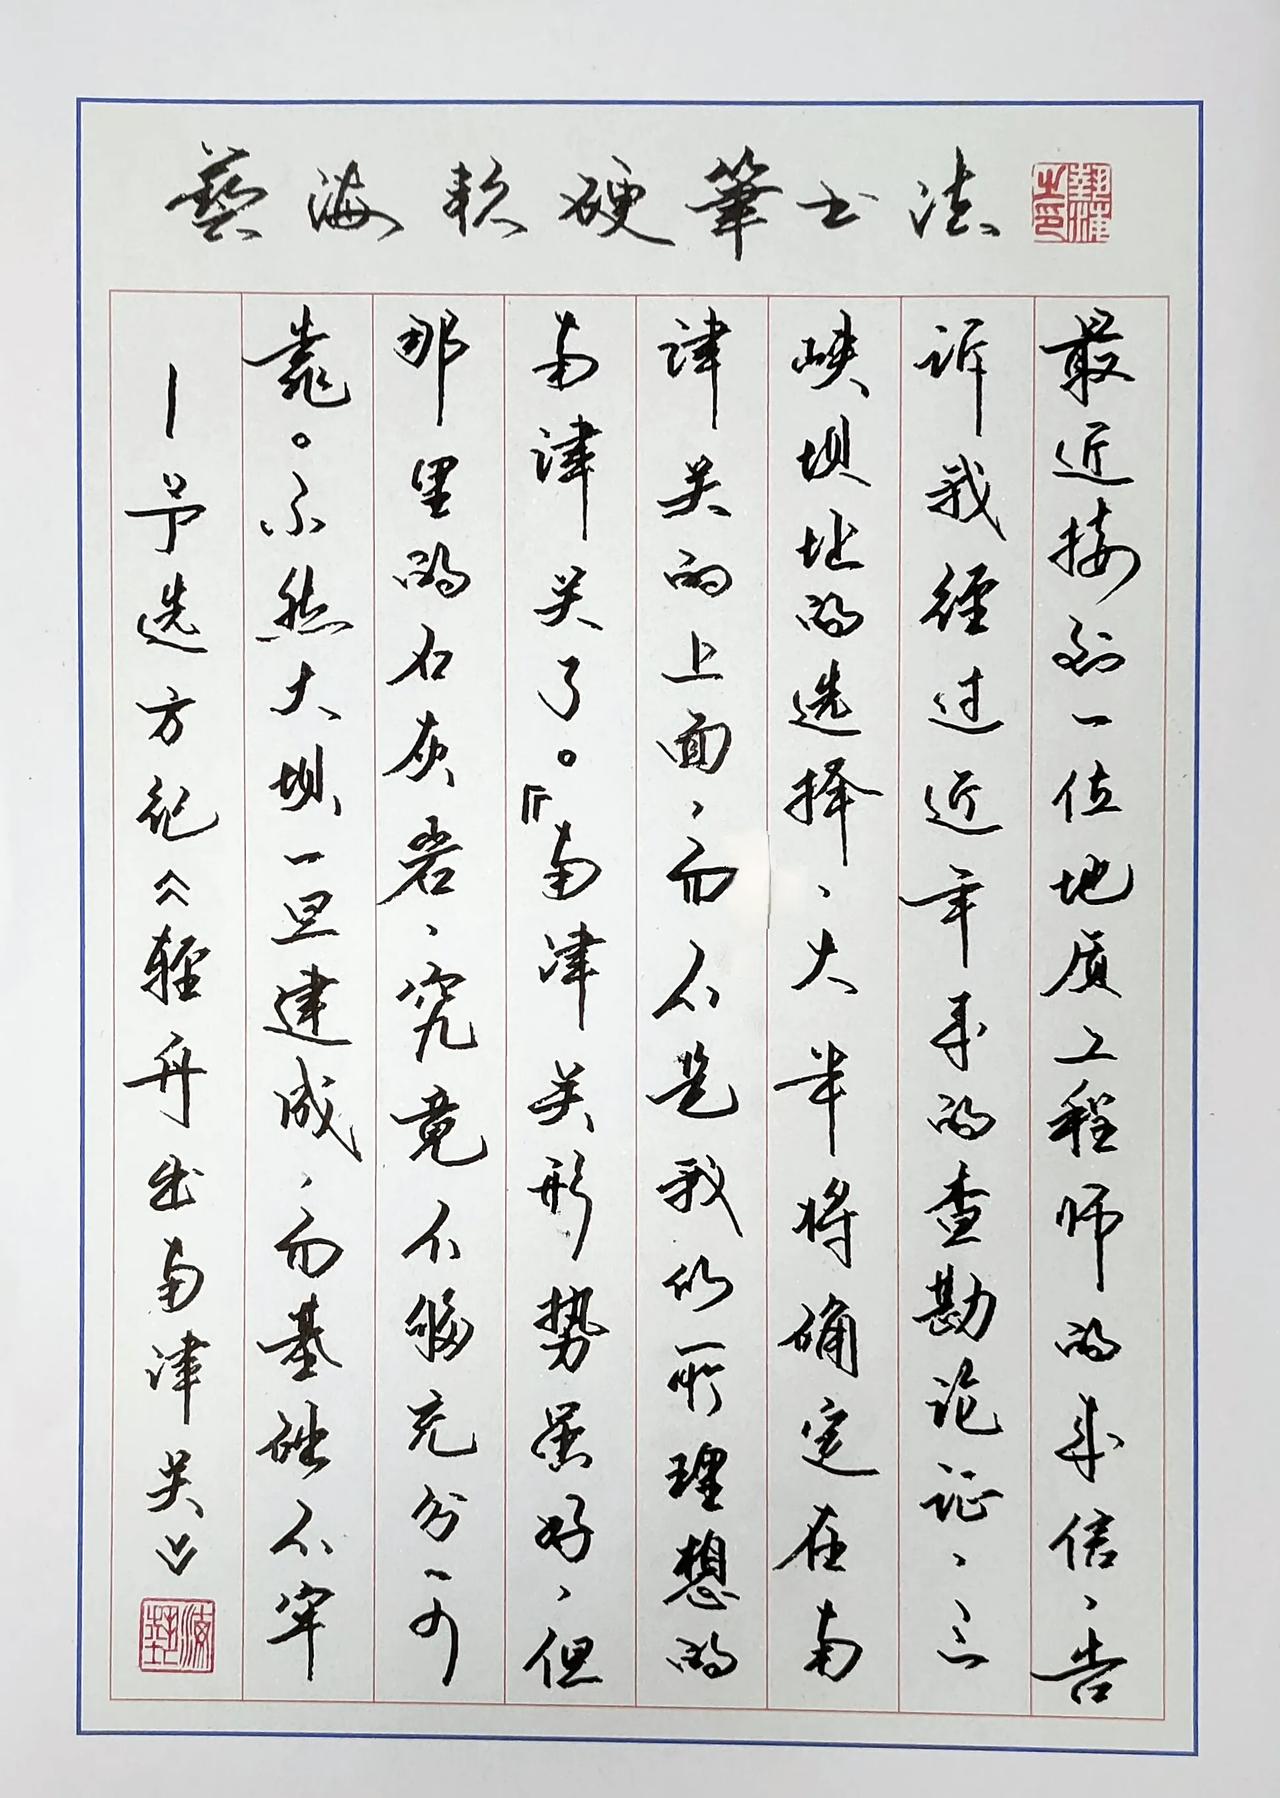 藝海软硬筆书法
最近接到一位地质工程师的来信、告
诉我经过近年来的查勘论证、三
峡坝址的选择、大半将确定在南
津关的上面、而不是我们所理想的
南津关了。『南津关形势虽好、但
那里的石灰岩、究竟不够充分可
靠。不然大坝一旦建成、而基础不牢
—予选方纪《轻舟出南津关》